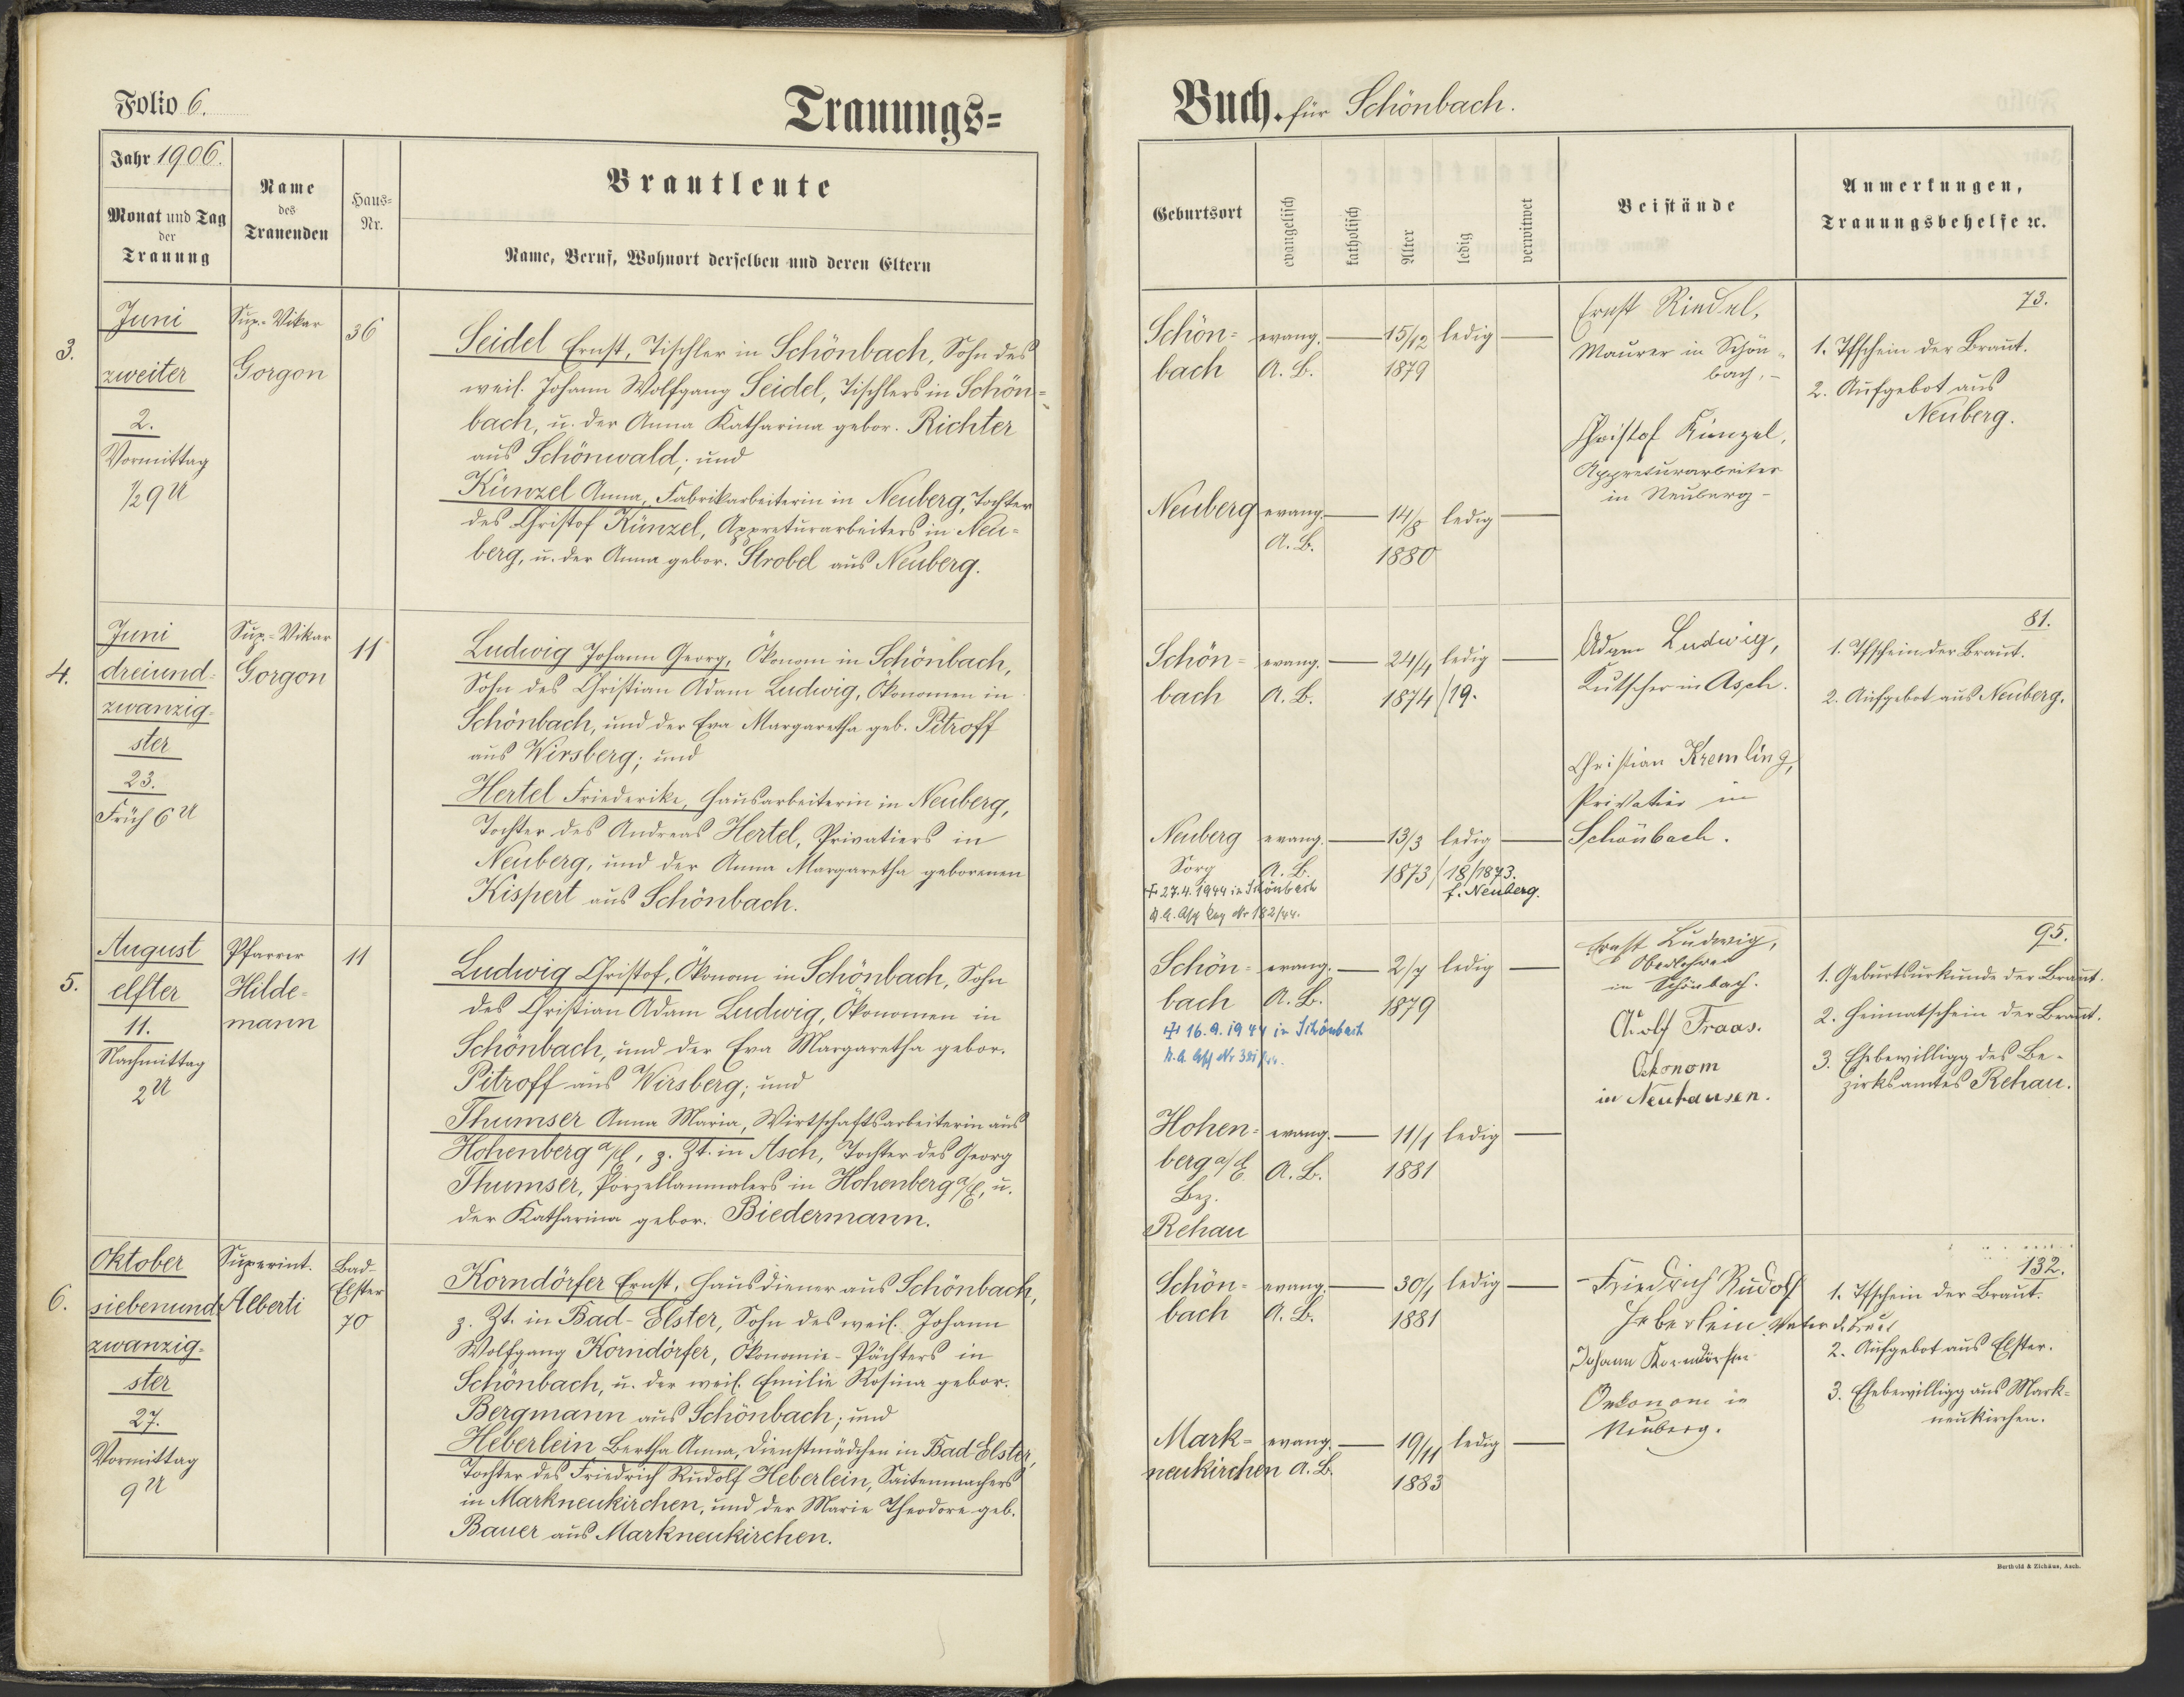 Folio 6.
Trauungs-
Jahr 1906.
Monat und Tag
der
Trauung
Name
des
Trauenden
Haus-
Nr.
Brautleute
Name, Beruf, Wohnort derselben und deren Eltern
3.
Juni
zweiter
2.
Vormittag
½9 U
Sup.-Vikar
Gorgon
36
Seidel Ernst, Tischler in Schönbach, Sohn des
weil. Johann Wolfgang Seidel, Tischlers in Schön-
bach, u. der Anna Katharina gebor. Richter
aus Schönwald; und
Künzel Anna, Fabrikarbeiterin in Neuberg, Tochter
des Christof Künzel, Appreturarbeiters in Neu-
berg, u. der Anna gebor. Strobel aus Neuberg.
4.
Juni
dreiund-
zwanzig-
ster
23.
Früh 6 U
Sup.-Vikar
Gorgon
11
Ludwig Johann Georg, Ökonom in Schönbach,
Sohn des Christian Adam Ludwig, Ökonomen in
Schönbach, und der Eva Margaretha geb. Pitroff
aus Wirsberg; und
Hertel Friederike, Hausarbeiterin in Neuberg,
Tochter des Andreas Hertel, Privatiers in
Neuberg, und der Anna Margaretha geborenen
Kispert aus Schönbach.
5.
August
elfter
11.
Nachmittag
2 U
Pfarrer
Hilde-
mann
11
Ludwig Christof, Ökonom in Schönbach, Sohn
des Christian Adam Ludwig, Ökonomen in
Schönbach, und der Eva Margaretha gebor.
Pitroff aus Wirsberg; und
Thumser Anna Maria, Wirtschaftsarbeiterin aus
Hohenberg a/E, z. Zt. in Asch, Tochter des Georg
Thumser, Porzellanmalers in Hohenberg a/E, u.
der Katharina gebor. Biedermann.
6.
Oktober
siebenund-
zwanzig-
ster
27.
Vormittag
9 U
Superint.
Alberti
Bad-
Elster
70
Korndörfer Ernst, Hausdiener aus Schönbach,
z. Zt. in Bad-Elster, Sohn des weil. Johann
Wolfgang Korndörfer, Ökonomie-Pächters in
Schönbach, u. der weil. Emilie Rosina gebor.
Bergmann aus Schönbach; und
Heberlein Bertha Anna, Dienstmädchen in Bad Elster,
Tochter des Friedrich Rudolf Heberlein, Saitenmachers
in Markneukirchen, und der Marie Theodore geb.
Bauer aus Markneukirchen.
Buch. für Schönbach.
Geburtsort
evangelisch
katholisch
Alter
ledig
verwitwet
Beistände
Anmerkungen,
Trauungsbehelfe ec.
Schön-
bach
evang.
A. B.
15/12
1879
ledig
Ernst Riedel,
Maurer in Schön-
bach,
73.
1. Tfschein der Braut.
2. Aufgebot aus
Neuberg.
Neuberg
evang.
A. B.
14/8
1880
ledig
Christof Künzel,
Appreturarbeiter
in Neuberg
Schön-
bach
evang.
A. B.
24/4
1874/19.
ledig
Adam Ludwig,
Kutscher in Asch.
81.
1. Tfschein der Braut.
2. Aufgebot aus Neuberg.
Neuberg
Sorg
evang.
A. B.
13/3
1873/18/1873.
f. Neuberg.
ledig
Christian Kremling,
Privatier in
Schönbach.
+ 27.4.1944 in Schönbach
Nr 182/44.
Schön-
bach
evang.
A. B.
2/7
1879
ledig
Ernst Ludwig,
Oberlehrer
in Schönbach.
95.
1. Geburtsurkunde der Braut.
2. Heimatschein der Braut.
3. Ehebewilligg des Be-
zirksamtes Rehau.
+ 16.9.1944 in Schönbach
Adolf Fraas.
Oekonom
in Neuhausen.
Hohen-
berg a/E
Bez.
Rehau
evang.
A. B.
11/1
1881
ledig
Schön-
bach
evang.
A. B.
30/1
1881
ledig
Friedrich Rudolf
Heberlein Vater d. Braut
Johann Korndörfer
Oekonom in
Neuberg.
132.
1. Tfschein der Braut.
2. Aufgebot aus Elster.
3. Ehebewilligg aus Mark-
neukirchen.
Mark-
neukirchen
evang.
A. B.
19/11
1883
ledig
Berthold & Zichäus, Asch.